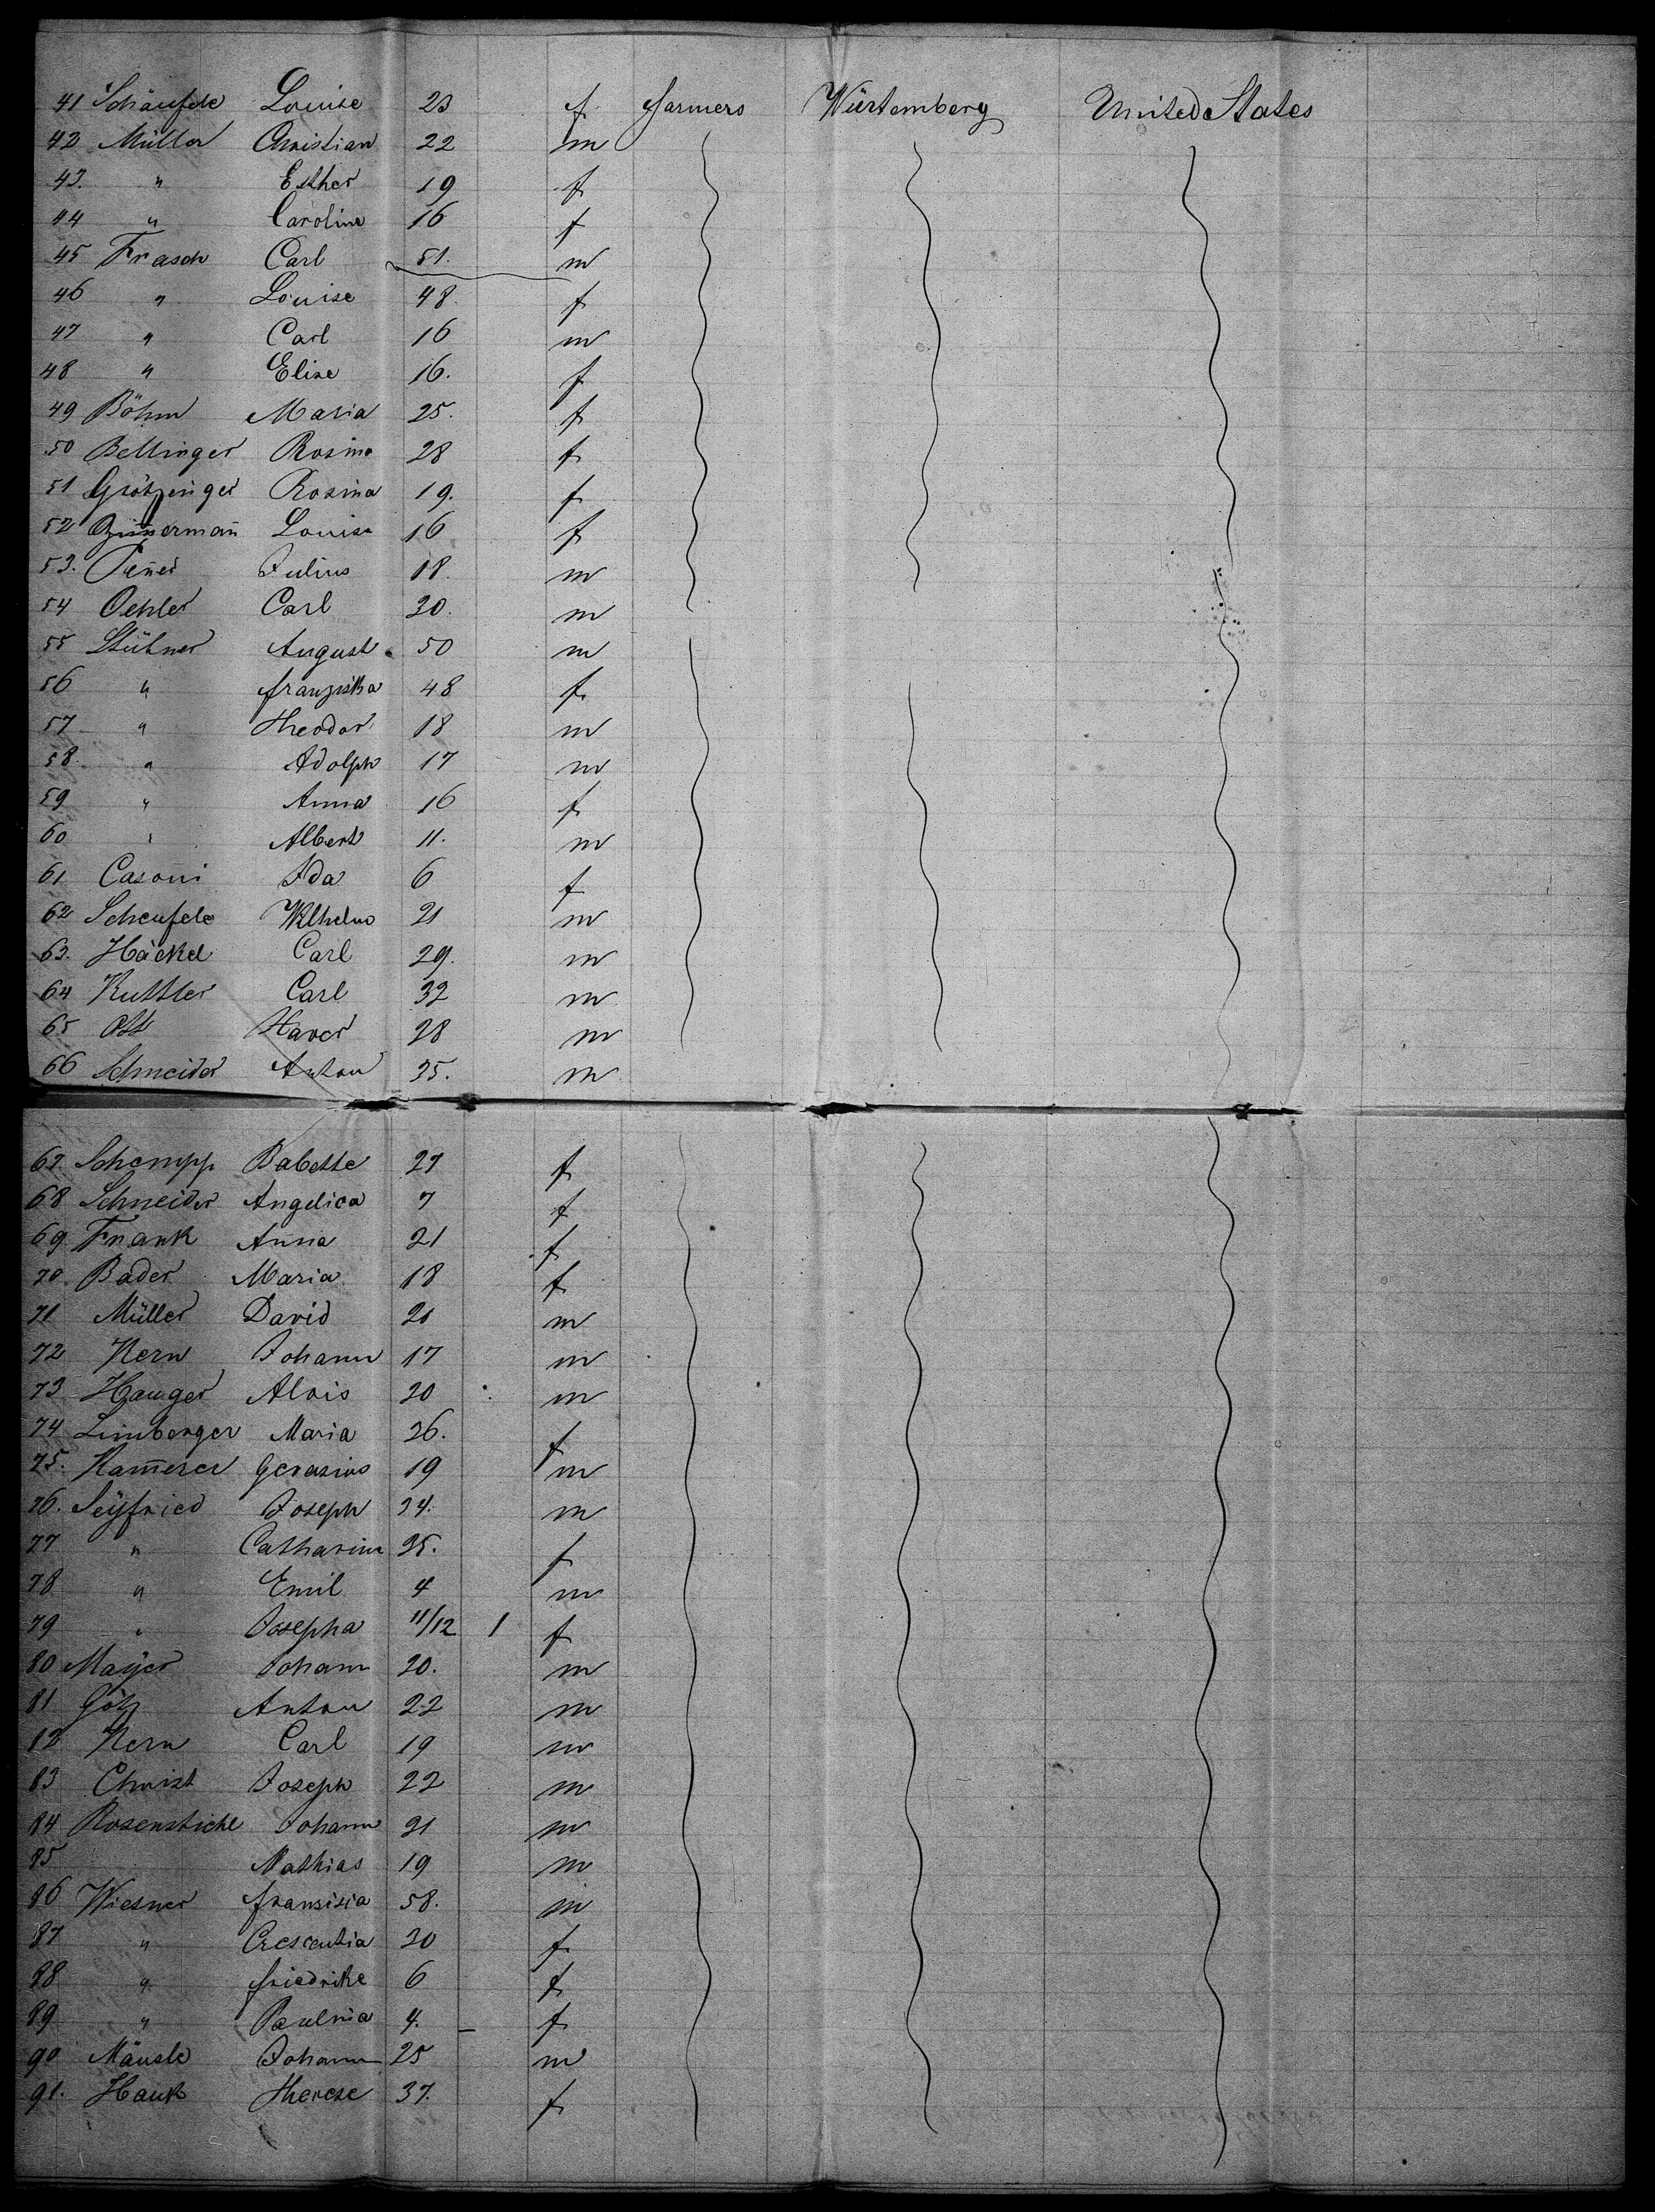 41 Schäufele Louise 23 f. farmers Würtemberg United States
42 Müller Christian 22 m
43. " Esther 19 f
44 " Caroline 16 f
45 Frasch Carl 51. m
46 " Louise 48. f
47 " Carl 16 m
48 " Elise 16. f
49 Böhm Maria 25. f
50 Bellinger Rosine 28 f
51 Grötzinger Rosina 19. f
52 Louise 16 f
53. Julius 18. m
54 Oehler Carl 30. m
55 Stübner August 50 m
56 " franziska 48 f.
57 " Theodor 18 m
58. " Adolph 17 m
59 " Anna 16 f
60 " Albert 11. m
61 Casoni Ida 6 f
62 Scheufele Wilhelm 21 m
63. Häckel Carl 29. m
64 Kuttler Carl 32 m
65 Ott Xaver 28 m
66 Schneider Anton 35. m
67. Schempp Babette 27 f
68 Schneider Angelica 7 f
69. Frank Anna 21 f
70. Bader Maria 18 f
71 Müller David 20 m
72 Kern Johann 17 m
73 Hauger Alois 20 m
74 Limberger Maria 26. f
75. Kam̄erer Gerasius 19 m
76. Seÿfried Joseph 34. m
77 " Catharine 25. f
78 " Emil 4 m
79 " Josepha 11/12 1 f
80 Mayer Johann 20. m
81 Götz Anton 22 m
82 Kern Carl 19 m
83 Christ Joseph 22 m
84 Rosenstichl Johann 21 m
85 Mathias 19 m
86 Wiesner 58. m
87 " Crescentia 20 f.
88 " friedrike 6 f
89 " Paulina 4. f
90 Mäusle Johann 25 m
91. Hauk Therese 37. f